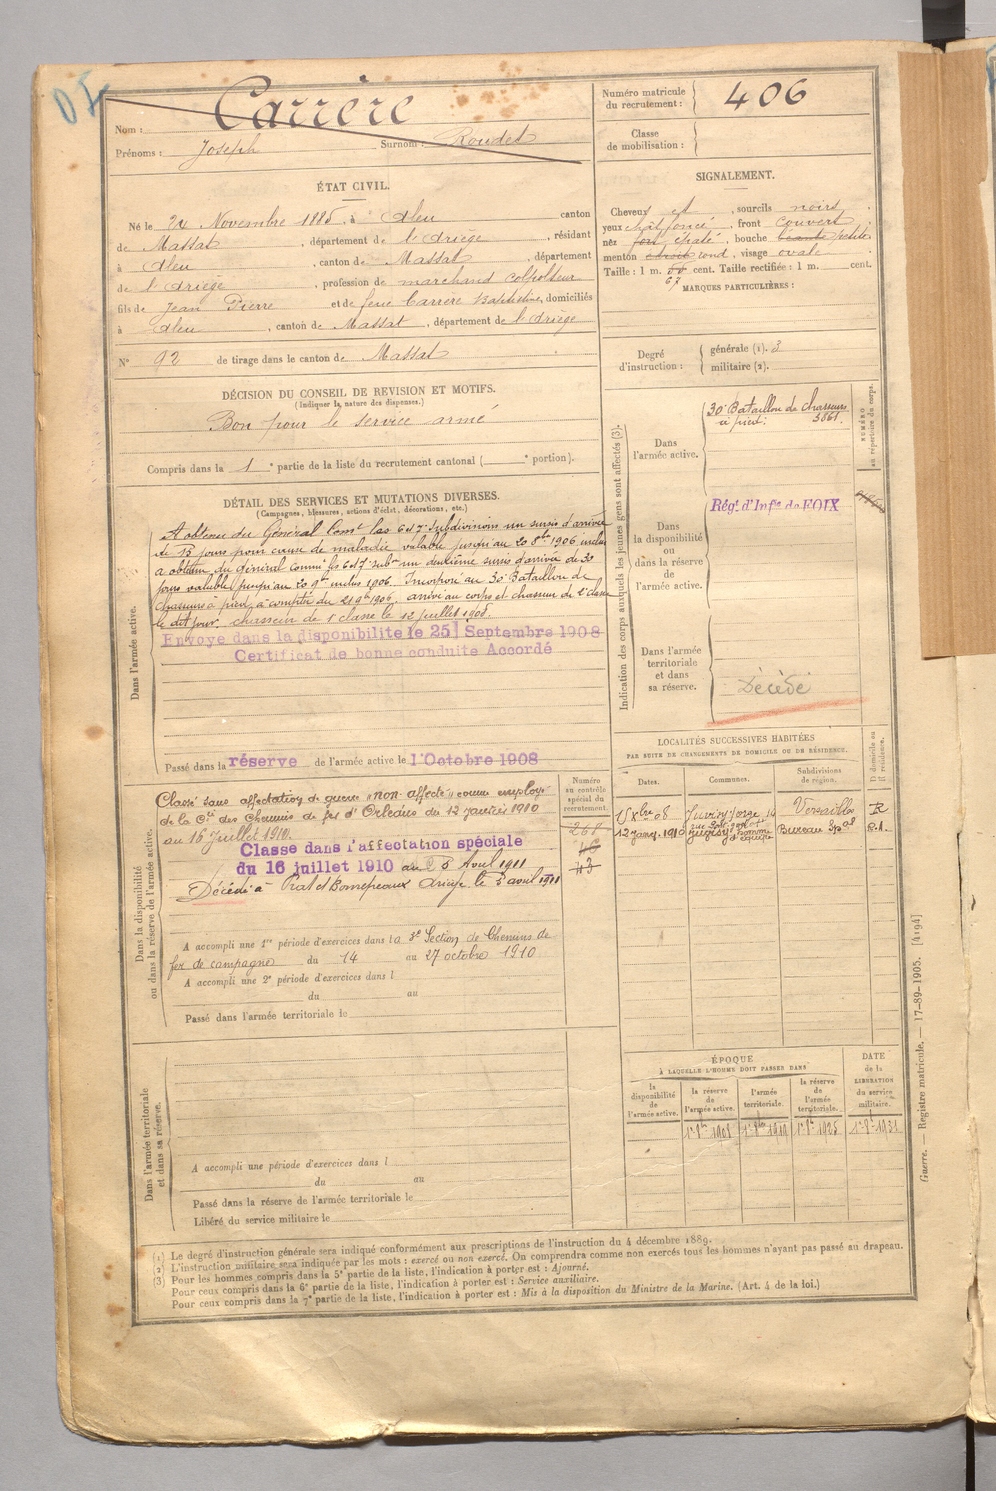 Nom : Carrère
Prénoms : Joseph Surnom : Roudet
Numéro matricule du recrutement : 406
Classe de mobilisation :
ÉTAT CIVIL.
Né le 24 Novembre 1885, à Aleu canton
de Massat, département de l'Ariège, résidant
à Aleu, canton de Massat, département
de l'Ariège, profession de marchand colporteur
fils de Jean Pierre et de feue Carrère Baptistine, domiciliés
à Aleu, canton de Massat, département de l'Ariège
N° 92 de tirage dans le canton de Massat
SIGNALEMENT.
Cheveux et, sourcils noirs,
yeux chât foncé, front couvert
nez fort épaté, bouche béante petite,
menton étroit rond, visage ovale
Taille : 1 m. 66 cent. Taille rectifiée : 1 m. cent.
67
MARQUES PARTICULIÈRES :
Degré d'instruction : générale (1). 3
militaire (2).
DÉCISION DU CONSEIL DE REVISION ET MOTIFS.
(Indiquer la nature des dispenses.)
Bon pour le service armé
Compris dans la 1e partie de la liste du recrutement cantonal ( e portion).
DÉTAIL DES SERVICES ET MUTATIONS DIVERSES.
(Campagnes, blessures, actions d'éclat, décorations, etc.)
Dans l'armée active.
A obtenu du Général Comt les 6 et 7e Subdivisions un sursis d'arrivée
de 15 jours pour cause de maladie valable jusqu'au 20 8bre 1906 inclus
a obtenu du général Commt les 6 et 7e subon un deuxième sursis d'arrivée de 30
jours valable jusqu'au 20 9bre inclus 1906. Incorporé au 30e Bataillon de
Chasseurs à pied à compter du 21 9bre 1906, arrivé au corps et chasseur de 2e classe
le dit jour. chasseur de 1e classe le 12 juillet 1908.
Envoyé dans la disponibilité le 25 Septembre 1908
Certificat de bonne conduite Accordé
Passé dans la réserve de l'armée active le 1 Octobre 1908
Indication des corps auxquels les jeunes gens sont affectés (3).
NUMÉRO au répertoire du corps.
Dans l'armée active.
30e Bataillon de chasseurs
à pied. 3861.
Dans la disponibilité ou dans la réserve de l'armée active.
Régt d'Infie de FOIX
Dans l'armée territoriale et dans sa réserve.
Décédé
Dans la disponibilité ou dans la réserve de l'armée active.
Numéro au contrôle spécial du recrutement.
Classé sans affectation de guerre "non affecté" comme employé
de la Cie des Chemins de fer d'Orléans du 12 janvier 1910
au 16 Juillet 1910.
Classé dans l'affectation spéciale
du 16 juillet 1910 au 5 Avril 1911
Décédé à Prat et Bonrepaux Ariège le 5 avril 1911
268
46
43
A accompli une 1re période d'exercices dans la 3e Section de Chemins de
fer de campagne du 14 au 27 octobre 1910
A accompli une 2e période d'exercices dans l
du au
Passé dans l'armée territoriale le
LOCALITÉS SUCCESSIVES HABITÉES
PAR SUITE DE CHANGEMENTS DE DOMICILE OU DE RÉSIDENCE.
Dates. Communes. Subdivisions de région. D domicile ou R résidence.
15 Xbre 08 Juvisy s/orge 14 Versailles R
12 janv. 1910 Juvisy homme d'équipe Bureau Spal
ÉPOQUE
À LAQUELLE L'HOMME DOIT PASSER DANS
la disponibilité de l'armée active.
la réserve de l'armée active.
l'armée territoriale.
la réserve de l'armée territoriale.
DATE de la LIBÉRATION du service militaire.
1er 8bre 1908 1er 8bre 1919 1er 8bre 1925 1er 8bre 1931
Dans l'armée territoriale et dans sa réserve.
A accompli une période d'exercices dans l
du au
Passé dans la réserve de l'armée territoriale le
Libéré du service militaire le
(1) Le degré d'instruction générale sera indiqué conformément aux prescriptions de l'instruction du 4 décembre 1889.
(2) L'instruction militaire sera indiquée par les mots : exercé ou non exercé. On comprendra comme non exercés tous les hommes n'ayant pas passé au drapeau.
(3) Pour les hommes compris dans la 5e partie de la liste, l'indication à porter est : Ajourné.
Pour ceux compris dans la 6e partie de la liste, l'indication à porter est : Service auxiliaire.
Pour ceux compris dans la 7e partie de la liste, l'indication à porter est : Mis à la disposition du Ministre de la Marine. (Art. 4 de la loi.)
Guerre. — Registre matricule. — 17-89-1905. [4194]